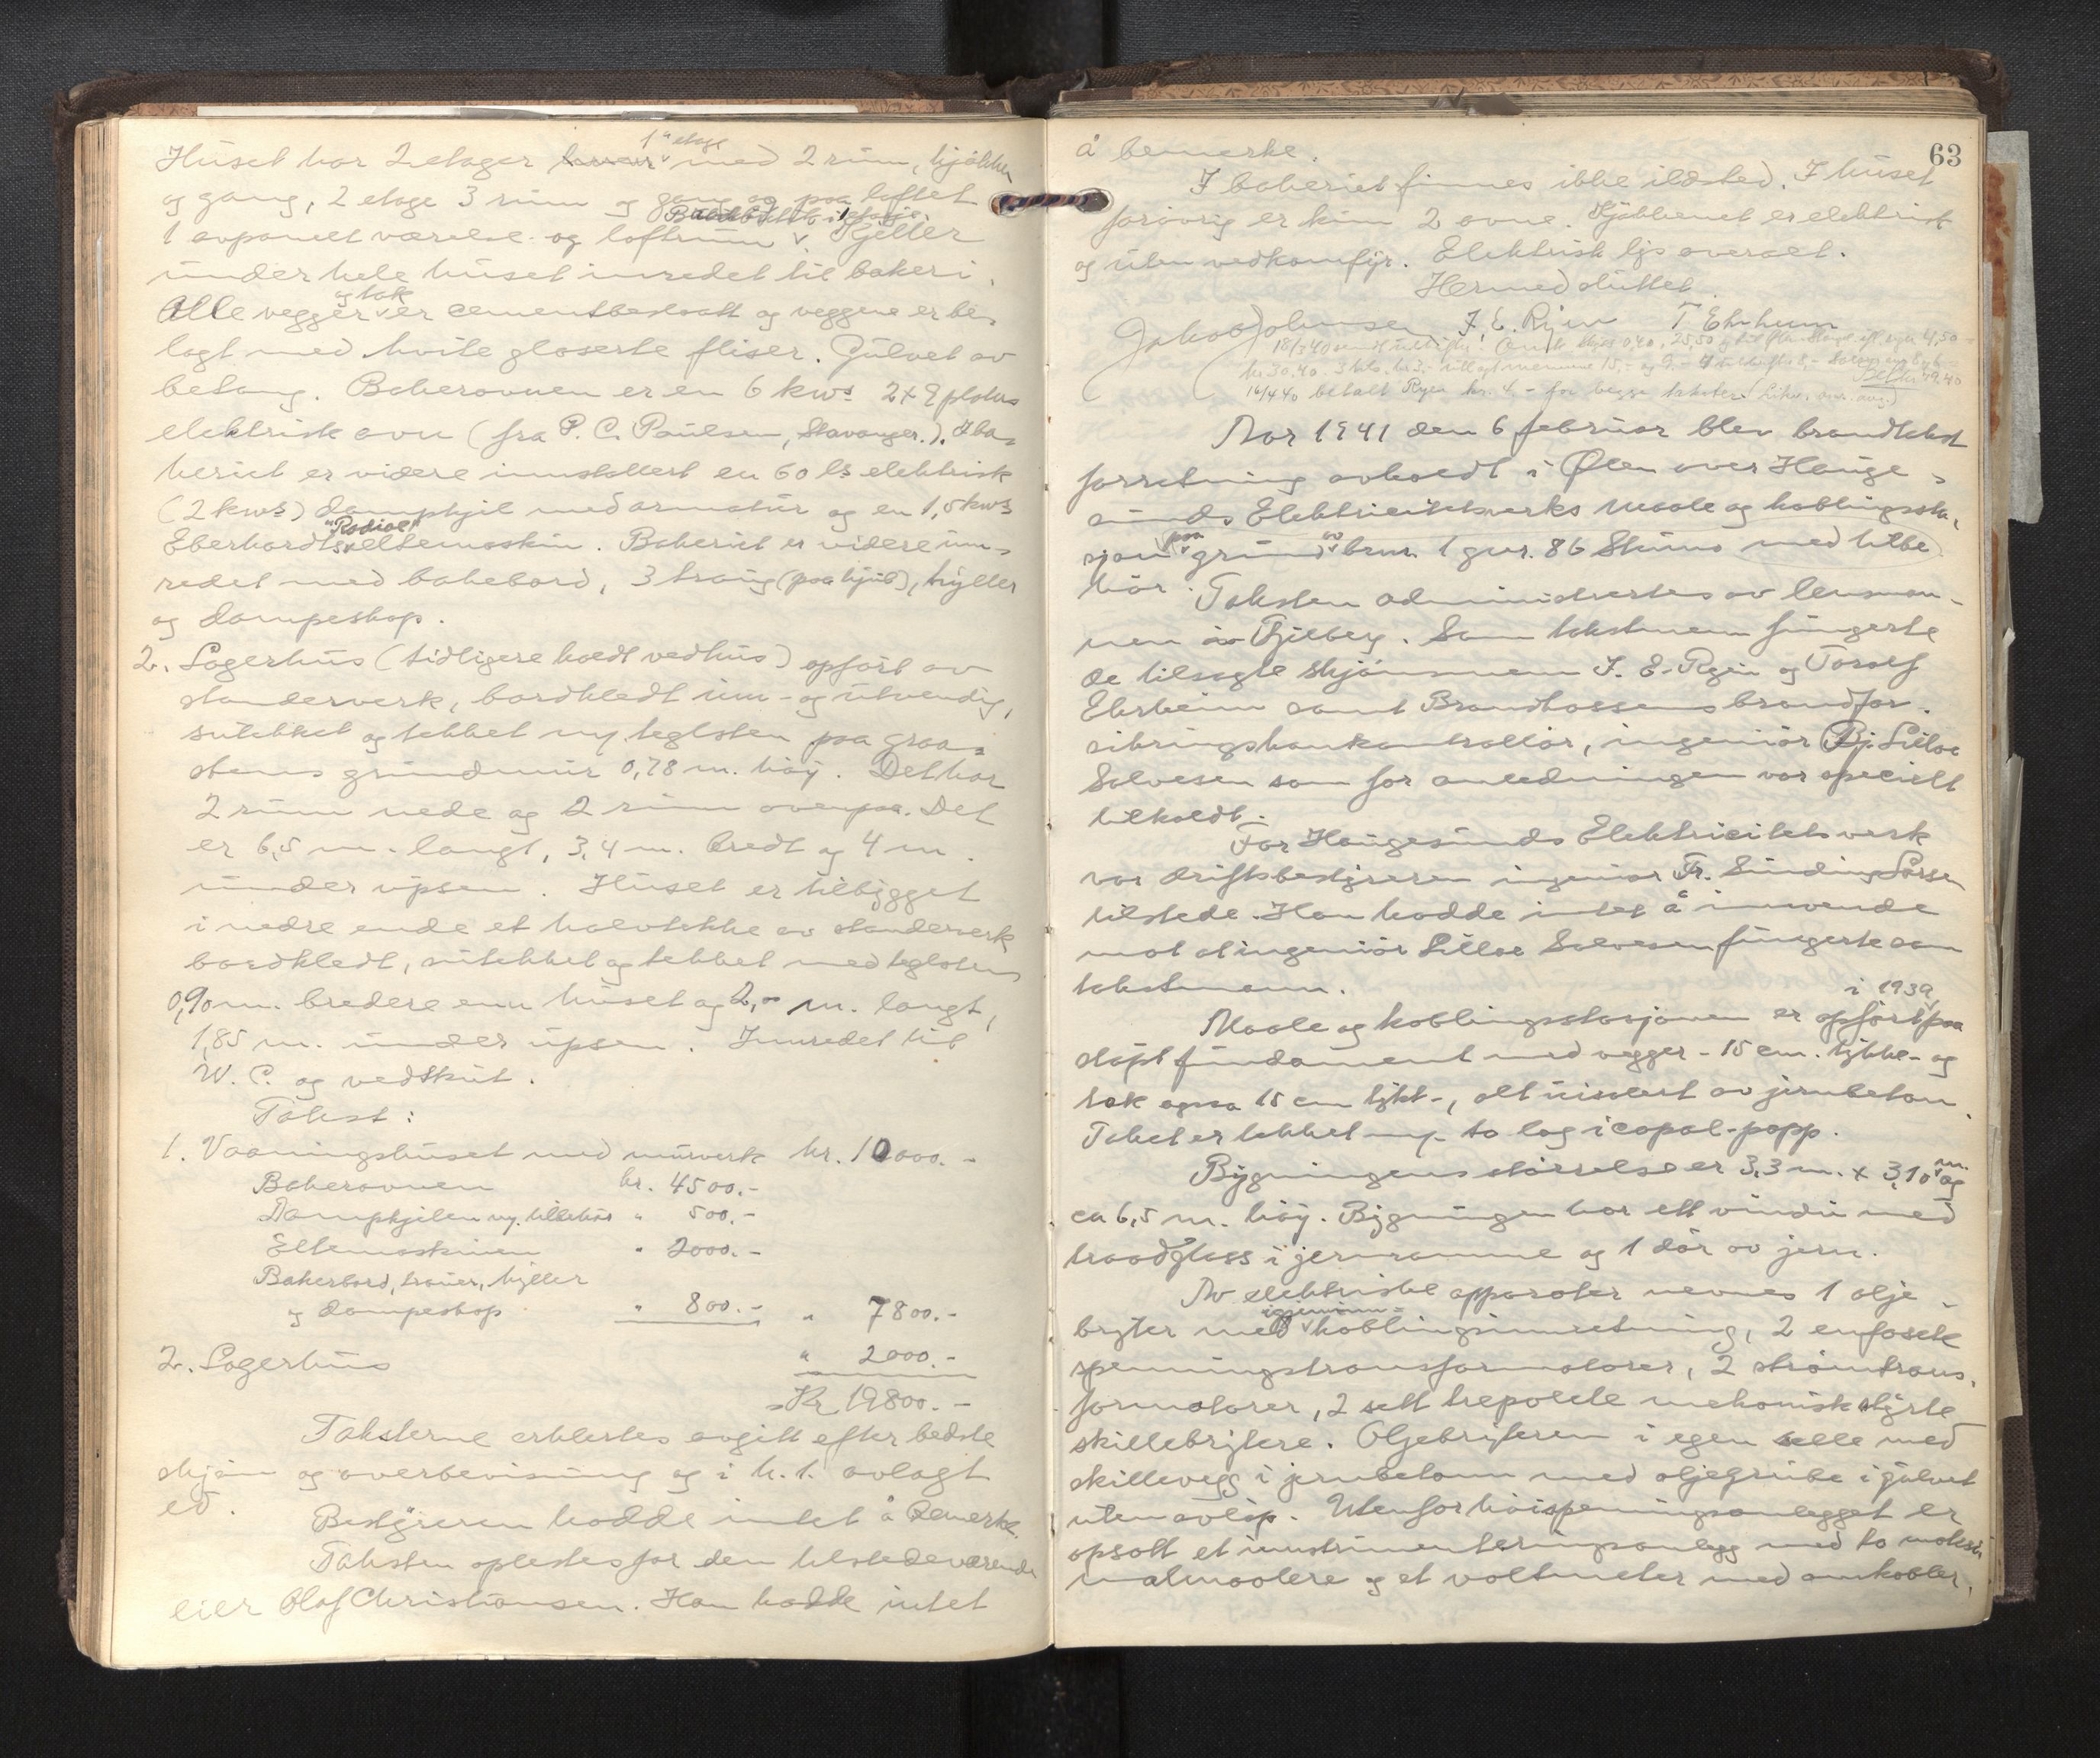 Huset har 2 etager 1ste etage med 2 rum, kjökken
og gang, 2 etage 3 rum og gang og paa loftet
1 avpanelt værelse og loftrum. Kjeller
under hele huset innredet til bakeri.
Alle vegger og tak er cementbeslaatt og veggene er be-
lagt med hvite glaserte fliser. Gulvet av
betong. Bakerovnen er en 6 kws 2x9 platers
elektrisk ovn (fra P. C. Paulsen, Stavanger.). I ba-
keriet er videre innstallert en 60 ls elektrisk
(2 kws) dampkjel med armatur og en 1,5 kws
Eberhardts "Radial" eltemaskin. Bakeriet er videre inn-
redet med bakebord, 3 traug (paa hjul), hyller
og dampeskap.
2. Lagerhus (tidligere kaldt vedhus) opfört av
standerverk, bordkledt inn- og utvendig,
sutekket og tekket m/ teglsten paa graa-
stens grundmur 0,78 m. höy. Det har
2 rum nede og 2 rum ovenpaa. Det
er 6,5 m. langt, 3,4 m. bredt og 4 m.
under upsen. Huset er tilbygget
i nedre ende et halvtekke av standerverk
bordkledt, sutekket og tekket med teglsten
0,90 m. bredere enn huset og 2,00 m. langt,
1,85 m. under upsen. Innredet til
W. C. og vedskut.
Takst:
1. Vaaningshuset med murverk kr. 10000.-
Bakerovnen kr. 4500.-
Dampkjelen m/ tilbehör " 500.-
Eltemaskinen " 2000.-
Bakerbord, trauer, hyller
og dampeskap " 800.- " 7800.-
2. Lagerhus " 2000.-
Kr 19800.-
Taksterne erklertes avgitt efter bedste
skjön og overbevisning og i h. t. avlagt
ed.
Bestyreren hadde intet å bemerke.
Taksten oplestes for den tilstedeværende
eier Olaf Christiansen. Han hadde intet
63
å bemerke.
I bakeriet finnes ikke ildsted. I huset
forövrig er kun 2 ovne. Kjökkenet er elektrisk
og uten vedkomfyr. Elektrisk lys overalt.
Hermed sluttet.
Jakob Johnsen I. E. Ryen T Ehrheim
16/4 40 betalt Ryen kr. 4.- for begge takster
Aar 1941 den 6 februar blev brandtakst
forretning avholdt i Ølen over Hauge-
sunds Elektricitetsverks maale og koblingssta-
sjon paa grund av brnr. 1 gnr. 86 med tilbe
hör.
Taksten administrertes av lensman-
nen i Fjelberg. Som takstmenn fungerte
de tilsagte skjönsmenn I. E. Ryen og Toralf
Ehrheim samt Brandkassens brandfor-
sikringskontrollör, ingeniör Bj. Lilloe
Salvesen som for anledningen var specielt
tilkaldt.
For Haugesunds Elektricitetsverk
var driftsbestyreren ingeniør Fr. Sinding Larsen
tilstede. Han hadde intet å innvende
mot at ingeniör Lilloe Salvesen fungerte som
takstmann.
Maale og koblingsstasjonen er opfört i 1939 paa
stöpt fundament med vegger - 15 cm. tykke - og
tak ogsaa 15 cm tykt -, alt isolert av jernbeton.
Taket er tekket m/ to lag icopal-papp.
Bygningens störrelse er 3,3 m. x 3,10 m. og
ca 6,5 m. höy. Bygningen har ett vindu med
traadglass i jernramme og 1 dör av jern.
Av elektriske apparater nevnes 1 olje-
bryter med igjeninn-koblingsinnretning, 2 enfasete
spenningstransformatorer, 2 strömtrans-
formatorer, 2 sett trepolete mekanisk styrte
skillebrytere. Oljebryteren i egen celle med
skillevegg i jernbetonn med oljegrube i gulvet
uten avlöp. Utenfor höispenningsanlegget er
opsatt et instrumenteringsanlegg med to maksi-
malmaalere og et voltmeter med omkobler,